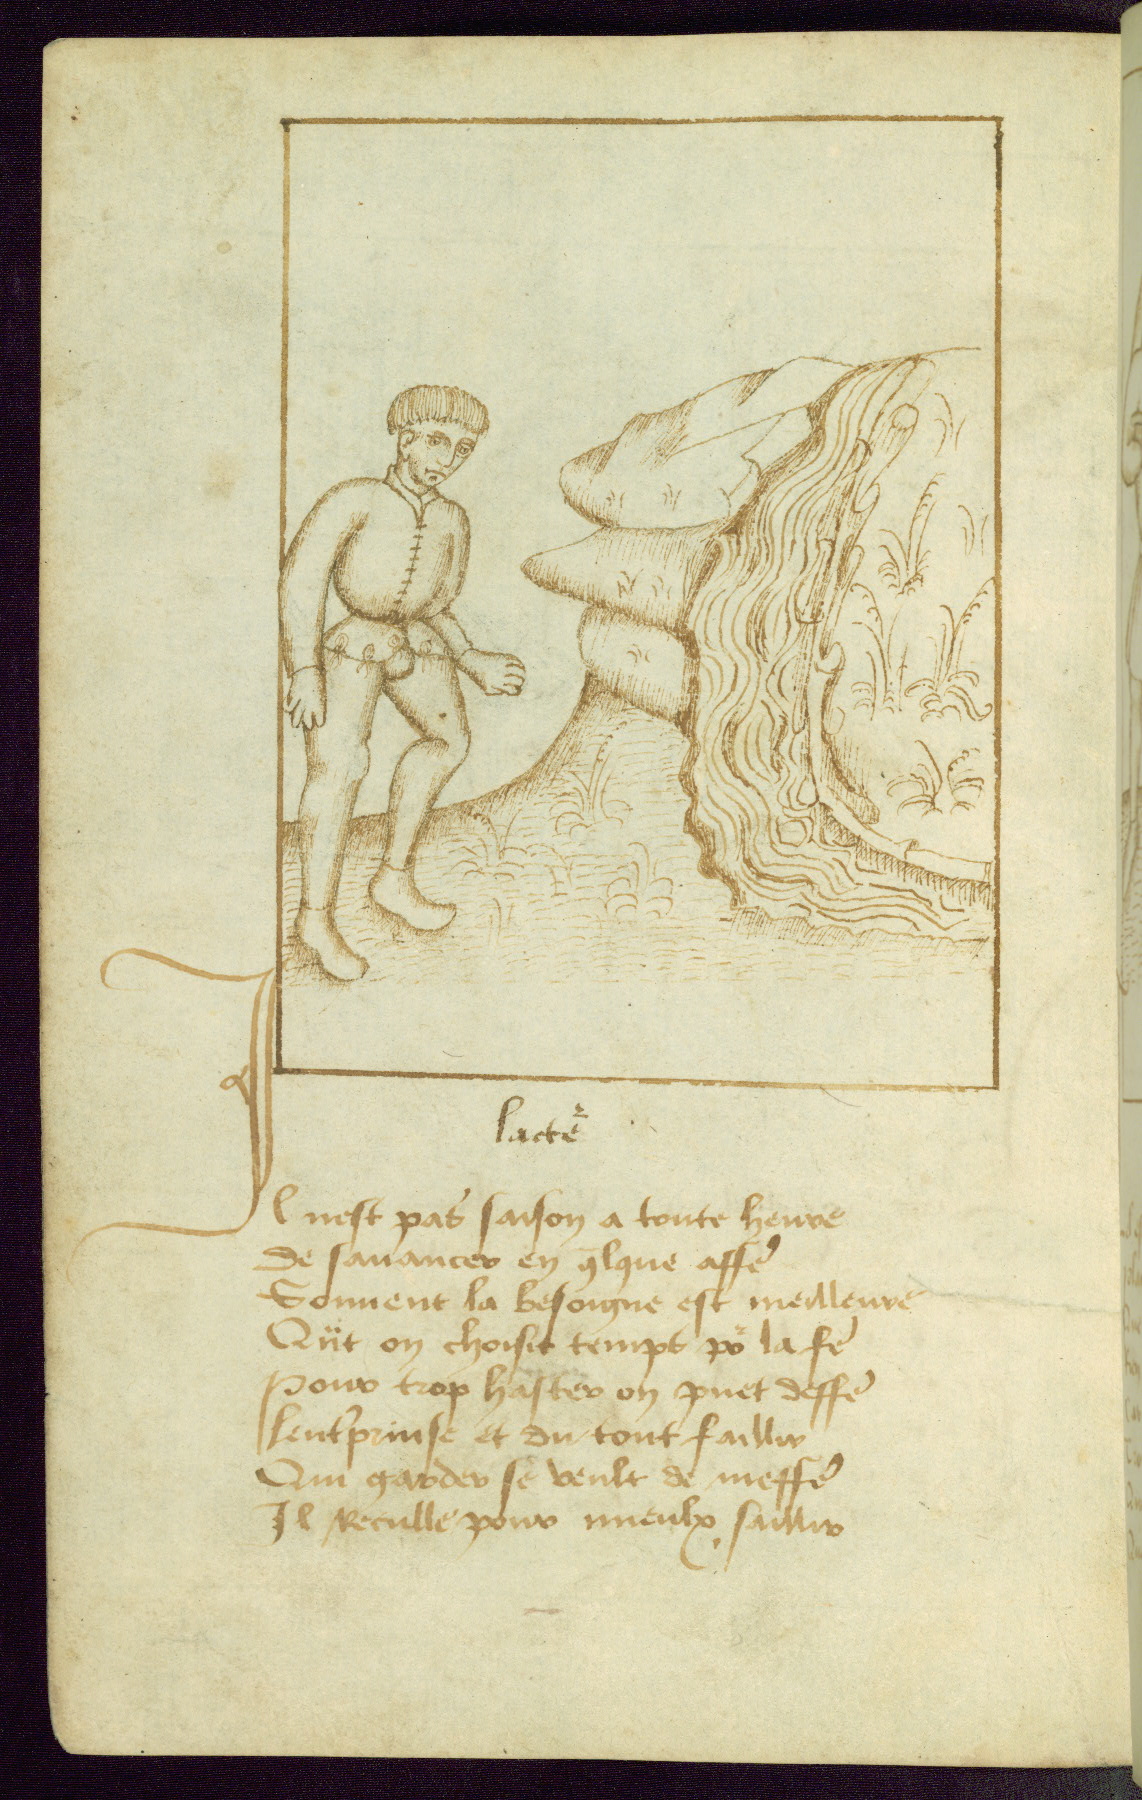 lacte᷑
Il nest pas saison a toute heure
De sauancer en q̅lque affe᷑
Souuent la besoigne est meilleure
Qūt on choisit temps po᷑ la fe᷑
Pour trop haster on puet deffe᷑
lent᷑prinse et du tout faillir
Qui garder se veult de meffe᷑
Il Reculle pour mieulx saillir